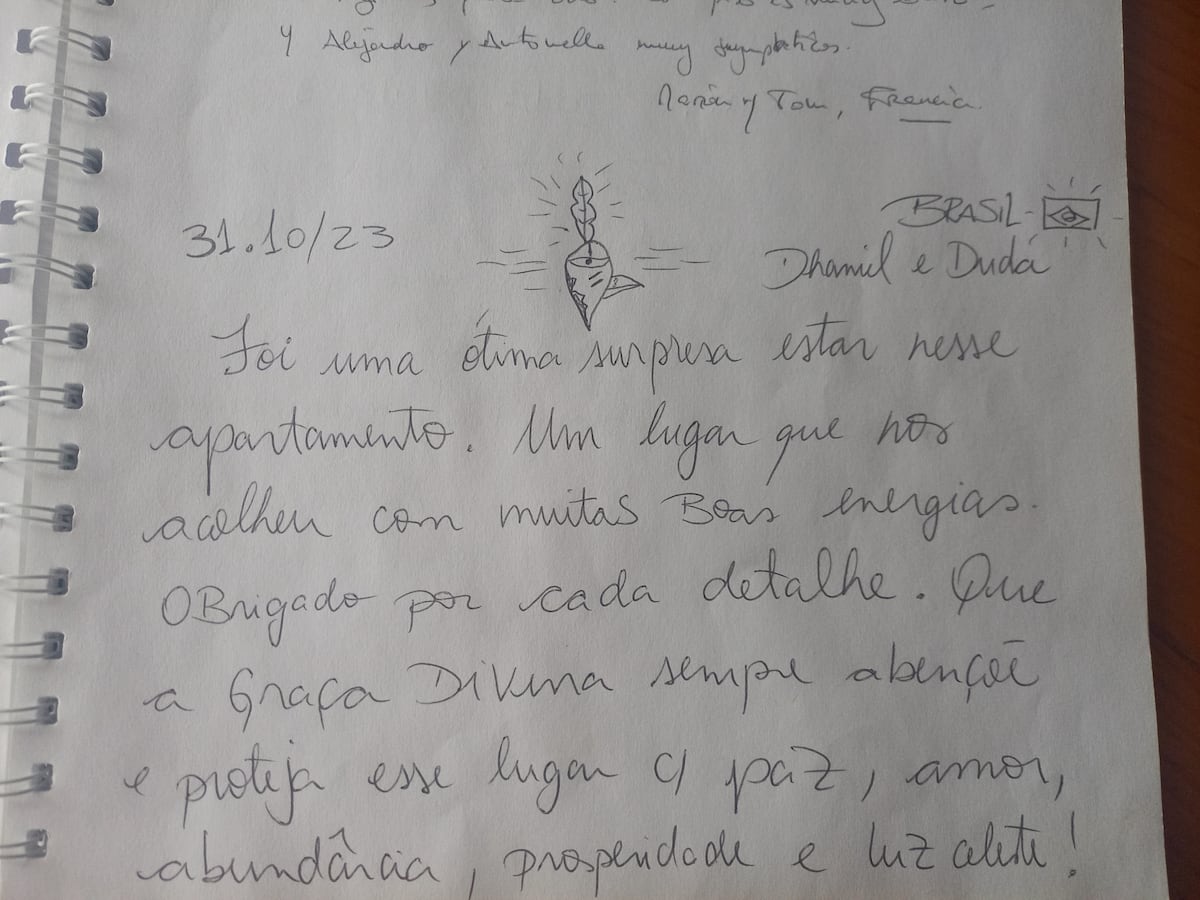 y Alejandro y Antonella muy sympaticos.
y Tom, Francia.
31.10/23
BRASIL-
Dhamil e Duda
Foi uma ótima surpresa estar nesse
apartamento. Um lugar que nos
acolheu com muitas Boas energias.
OBrigado por cada detalhe. Que
a Graça Divina sempre abençõe
e proteja esse lugar c/ paz, amor,
abundância, prosperidade e luz celeste!